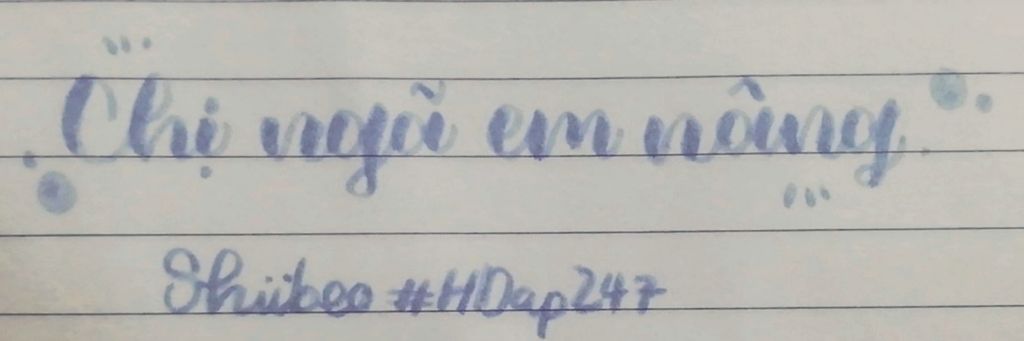 Chị ngã em nâng
Shiibeo #HDap247